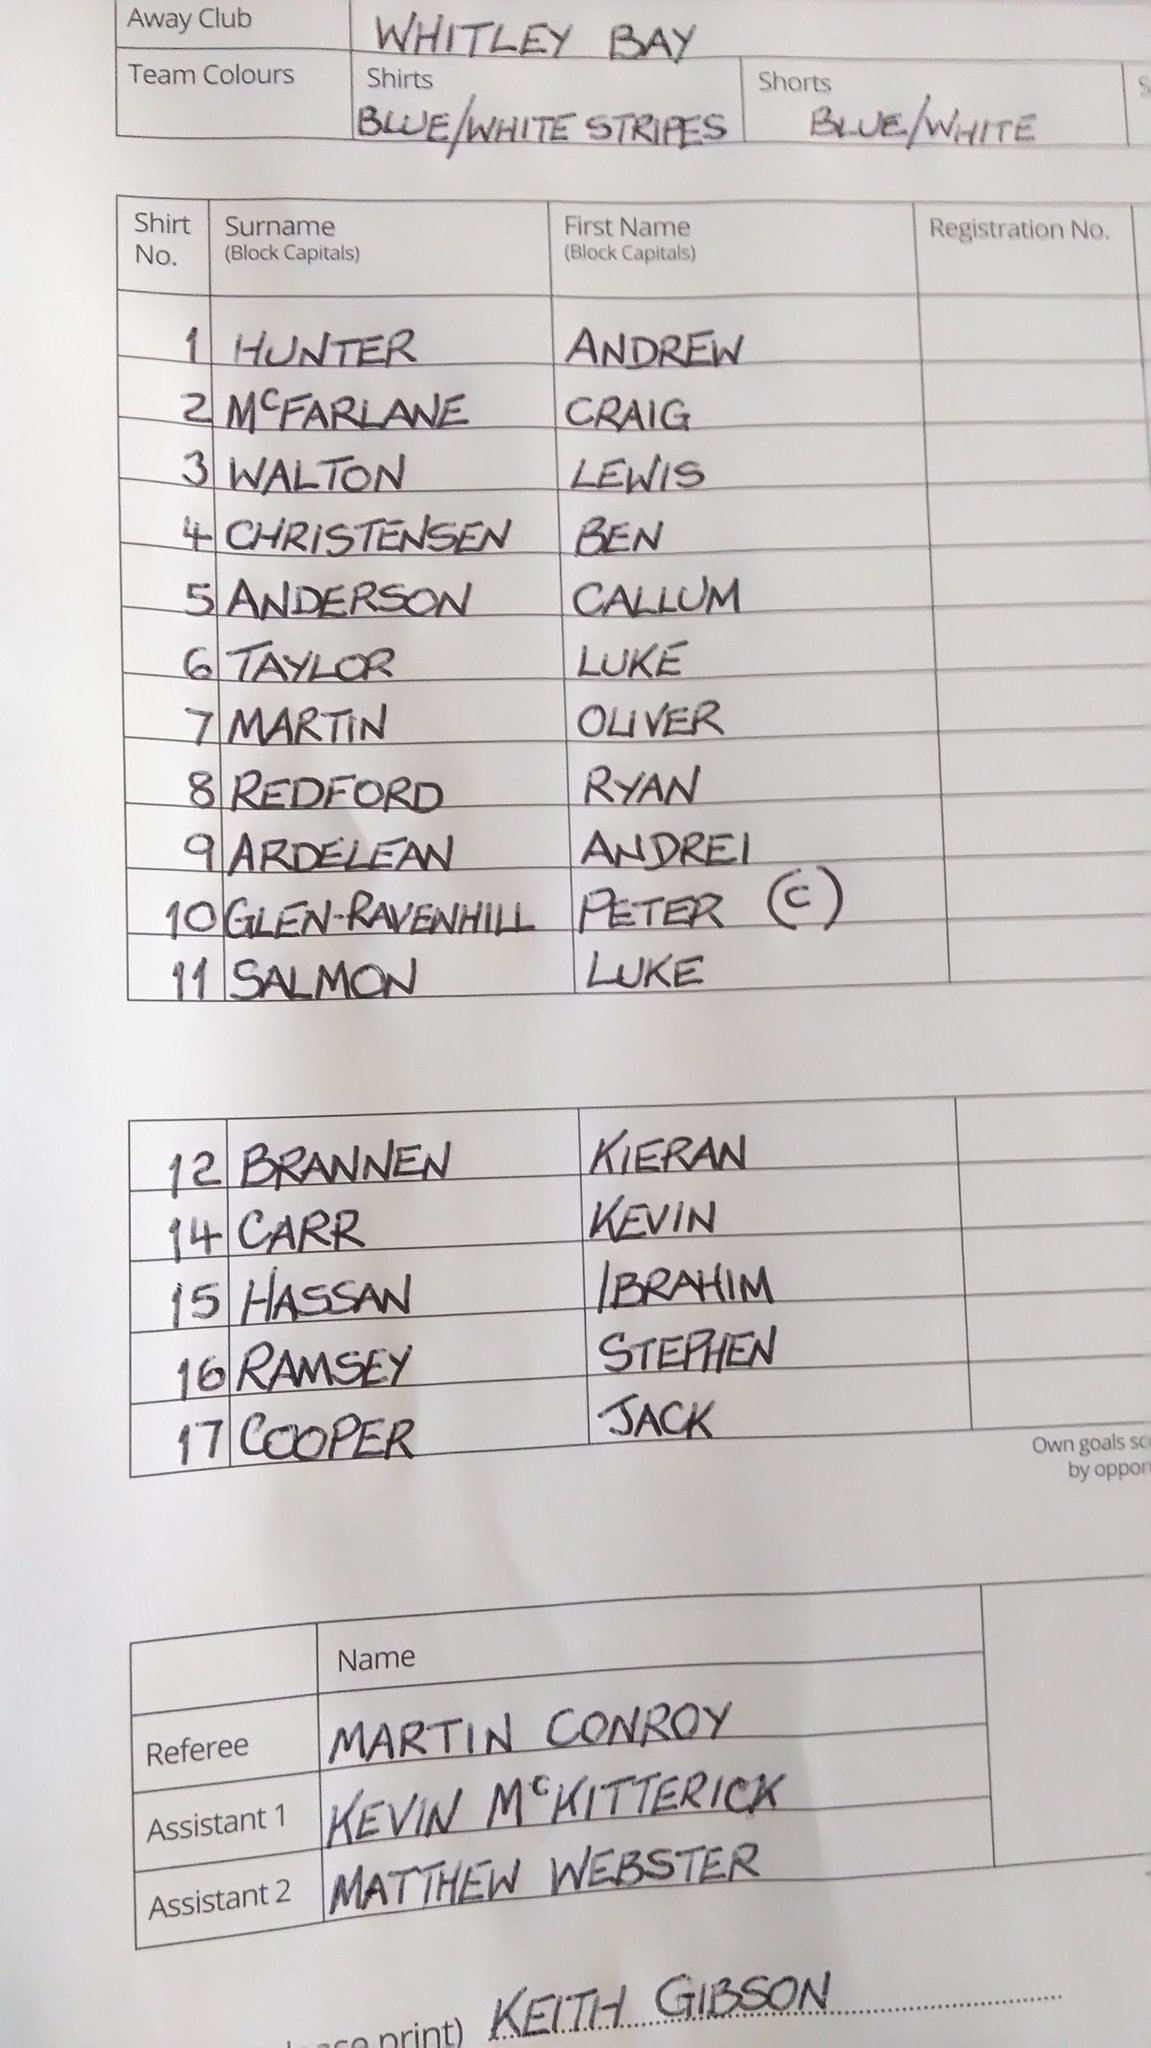 Away Club WHITLEY BAY
Team Colours Shirts Shorts
BLUE/WHITE STRIPES BLUE/WHITE
Shirt No. Surname (Block Capitals) First Name (Block Capitals) Registration No.
1 HUNTER ANDREW
2 McFARLANE CRAIG
3 WALTON LEWIS
4 CHRISTENSEN BEN
5 ANDERSON CALLUM
6 TAYLOR LUKE
7 MARTIN OLIVER
8 REDFORD RYAN
9 ARDELEAN ANDREI
10 GLEN-RAVENHILL PETER (C)
11 SALMON LUKE
12 BRANNEN KIERAN
14 CARR KEVIN
15 HASSAN IBRAHIM
16 RAMSEY STEPHEN
17 COOPER JACK
Own goals
by
Name
Referee MARTIN CONROY
Assistant 1 KEVIN McKITTERICK
Assistant 2 MATTHEW WEBSTER
print) KEITH GIBSON